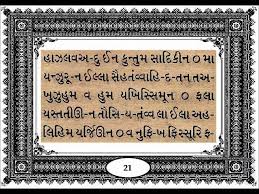 હાઝલવઅ-દુ ઈન કુન્તુમ સાદિકીન ૦ મા
યન્ઝુરૂન ઈલ્લા સૈહતંવ્વાહિ-દ-તન્તઅ-
ખુઝુહુમ વ હુમ યખિસ્સિમૂન ૦ ફલા
યસ્તતીઊ-ન તૌસિ-ય-તંવ્વ લા ઈલા અહ-
લિહિમ યર્જિઊન ૦ વ નુફિ-ખ ફિસ્સૂરિ ફ-
21